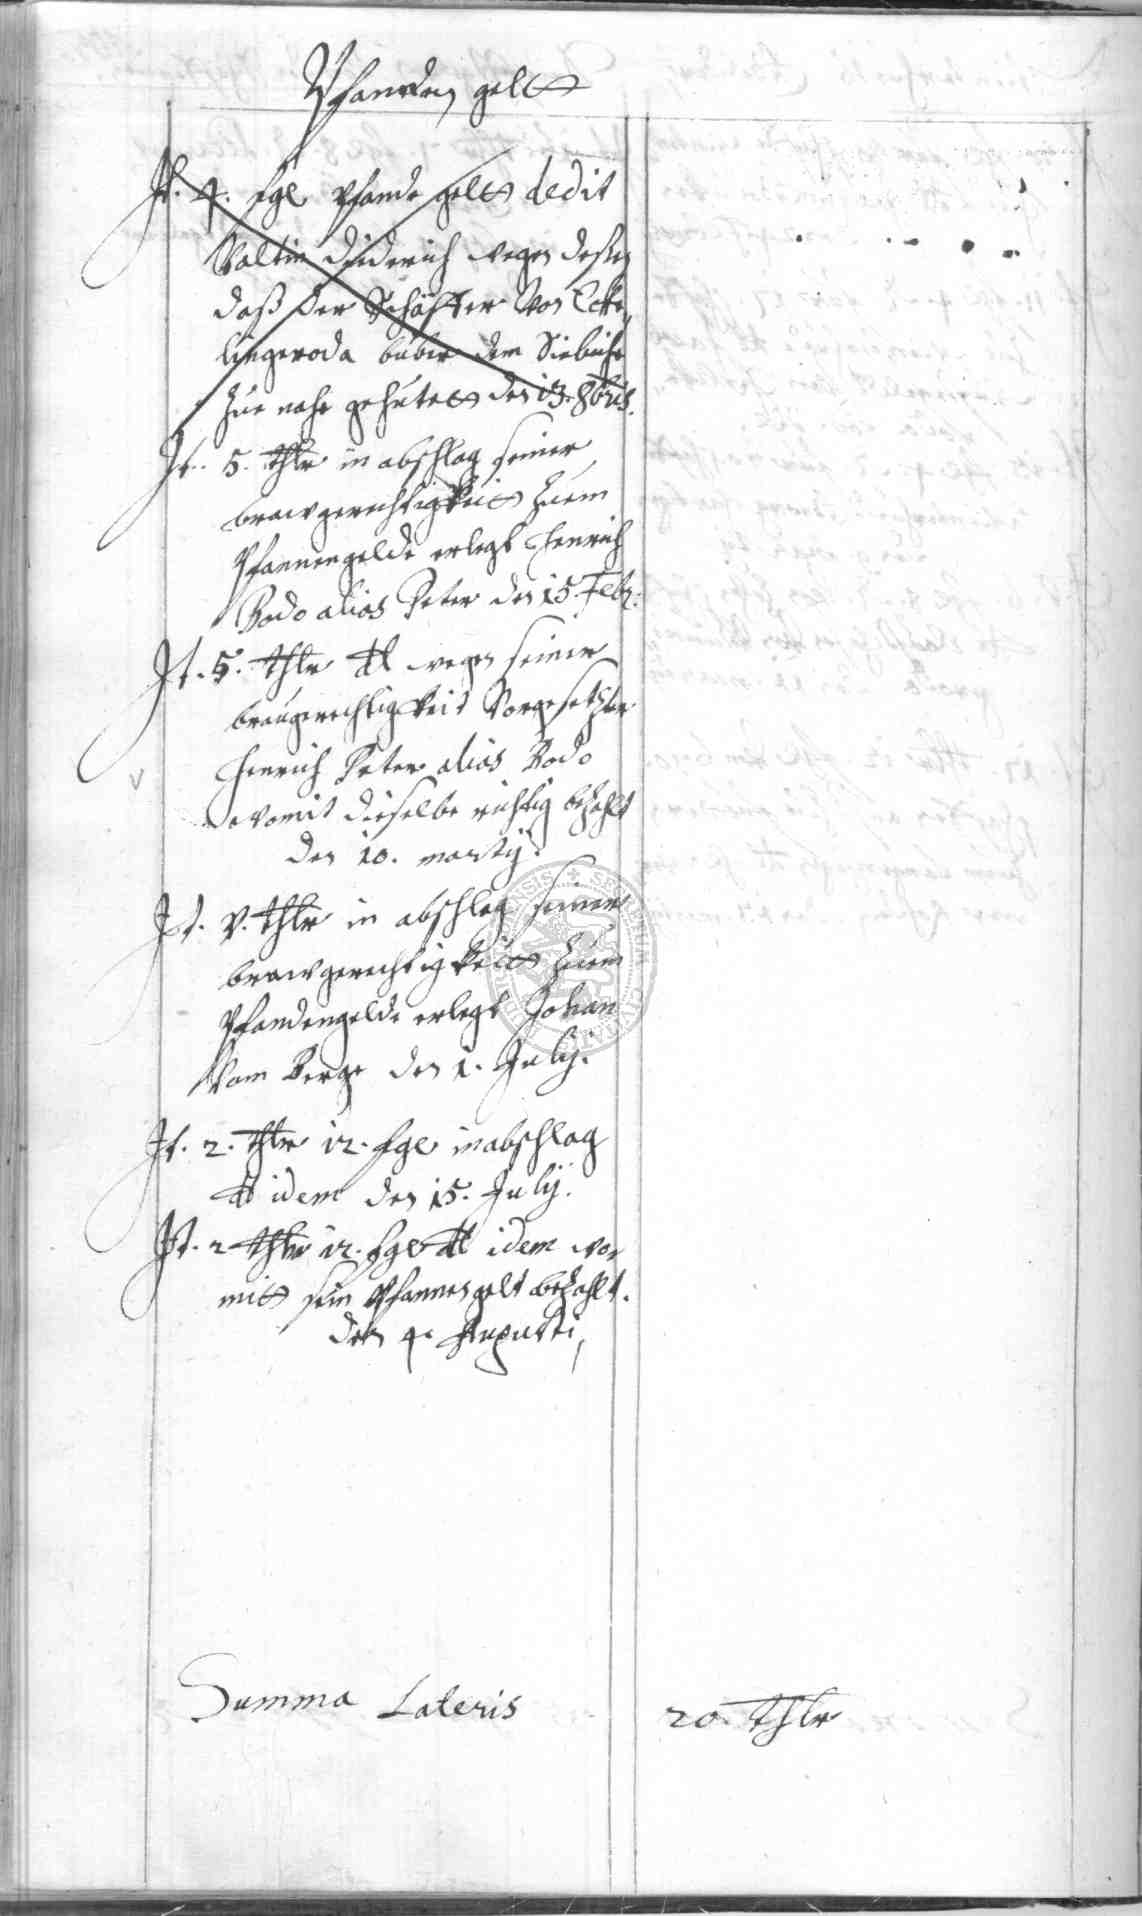 Pfanden gelt
It. 4. sgl Pfande gelt dedit
Valtin Diederich wegen dessen
daß der Schäffer von Ecke,
lingeroda dem
zue nahe gehütet den 13. 8bris.
It. 5. thlr in abschlag seiner
brawgerechtigkeit zuem
Pfannengelde erlegt Henrich
Bodo alias Peter den 15. Feb:
It. 5. thlr dt wegen seiner
braugerechtigkeit Vorgesetzter
Henrich Peter alias Bodo
womit dieselbe richtig bezahlt
den 10. martij.
It. V. thlr in abschlag seiner
brawgerechtigkeit zuem
Pfandengelde erlegt Johan
Vom Berge den 1. Julij.
It. 2. thlr 12. sgl inabschlag
dt idem den 15. Julij.
It. 2 thlr 12. sgl dt idem wo
mit sein Pfannengelt bezahlt.
den 4. Augusti,
Summa Lateris 20. thlr